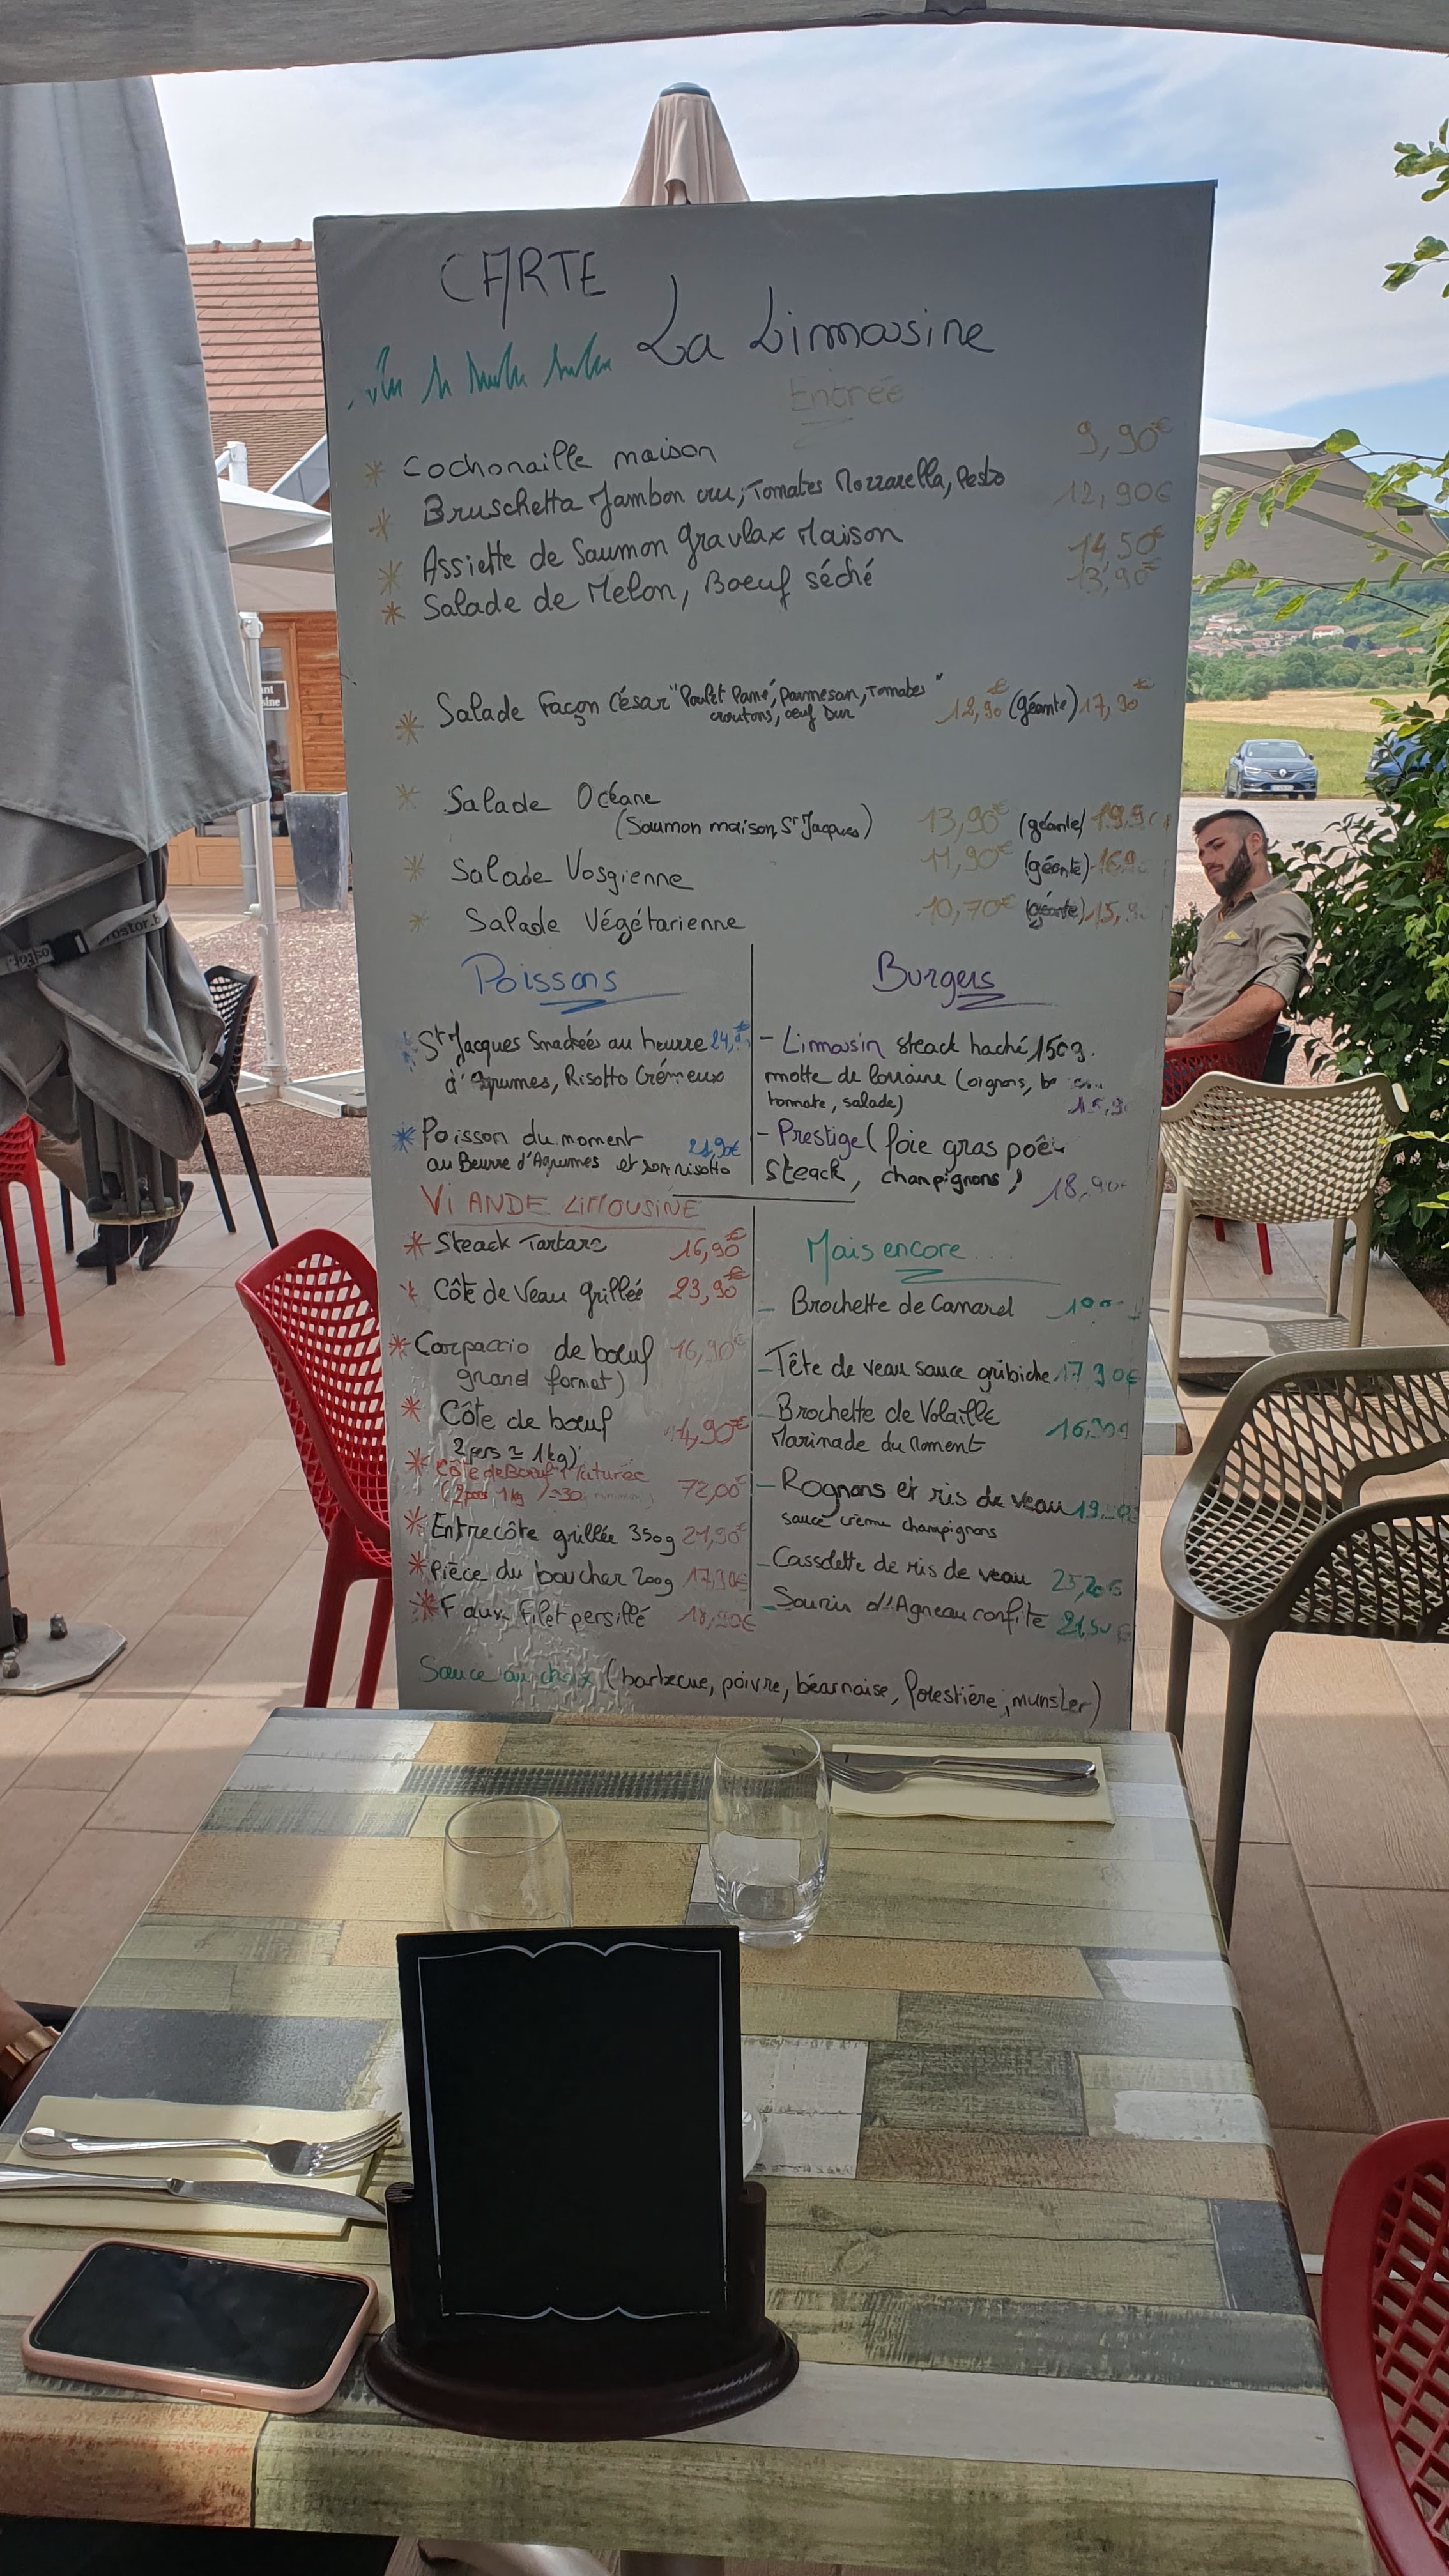 CARTE
La Limousine
Entrée
Cochonaille maison 9,90€
Bruschetta Jambon cru, Tomates Mozzarella, Pesto 12,90€
Assiette de Saumon gravlax Maison 14,50€
Salade de Melon, Boeuf séché 13,90€
Salade Façon César "Poulet Pané, parmesan, Tomates 12,90€ (géante) 17,90€
croutons, œuf Dur"
Salade Océane
(Saumon maison, St Jacques) 13,90€ (géante)
Salade Vosgienne 11,90€ (géante)
Salade Végétarienne 10,70€ (géante)
Poissons
St Jacques Snackées au beurre
d'Agrumes, Risotto Crémeux
Poisson du moment 21,90€
au Beurre d'Agrumes et son risotto
Burgers
- Limousin steack haché 150g.
motte de lorraine (oignons,
tomate, salade)
- Prestige (foie gras
Steack, champignons) 18,90€
VIANDE LIMOUSINE
Steack Tartare 16,90€
Côte de Veau grillée 23,90€
Carpaccio de bœuf 16,90€
grand format)
Côte de bœuf
2 pers ≃ 1kg)
Côte de Boeuf Maturée 72,00€
(2 pers 1kg
Entrecôte grillée 350g 21,90€
Pièce du boucher 200g 17,90€
Faux Filet persillé 18,90€
Mais encore
- Brochette de Canard
- Tête de veau sauce gribiche 17,90€
- Brochette de Volaille 16,90€
Marinade du Moment
- Rognons et ris de veau
sauce crème champignons
- Cassolette de ris de veau 25,20€
- Souris d'Agneau confite 21,50€
Sauce au choix (barbecue, poivre, béarnaise, forestière, munster)